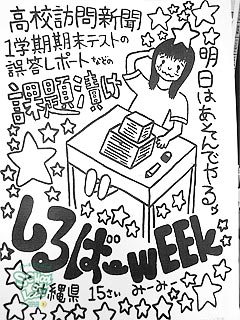 高校訪問新聞
1学期期末テストの
誤答レポートなどの
課題漬け
明日はあそんでやるっ
しるばーWEEK
沖縄県 15さい みーみー